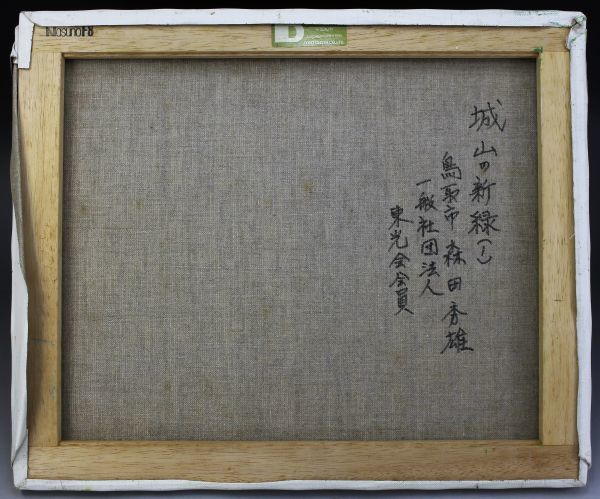 城山の新緑(1)
鳥取市 森田秀雄
一般社団法人
東光会会員
F8